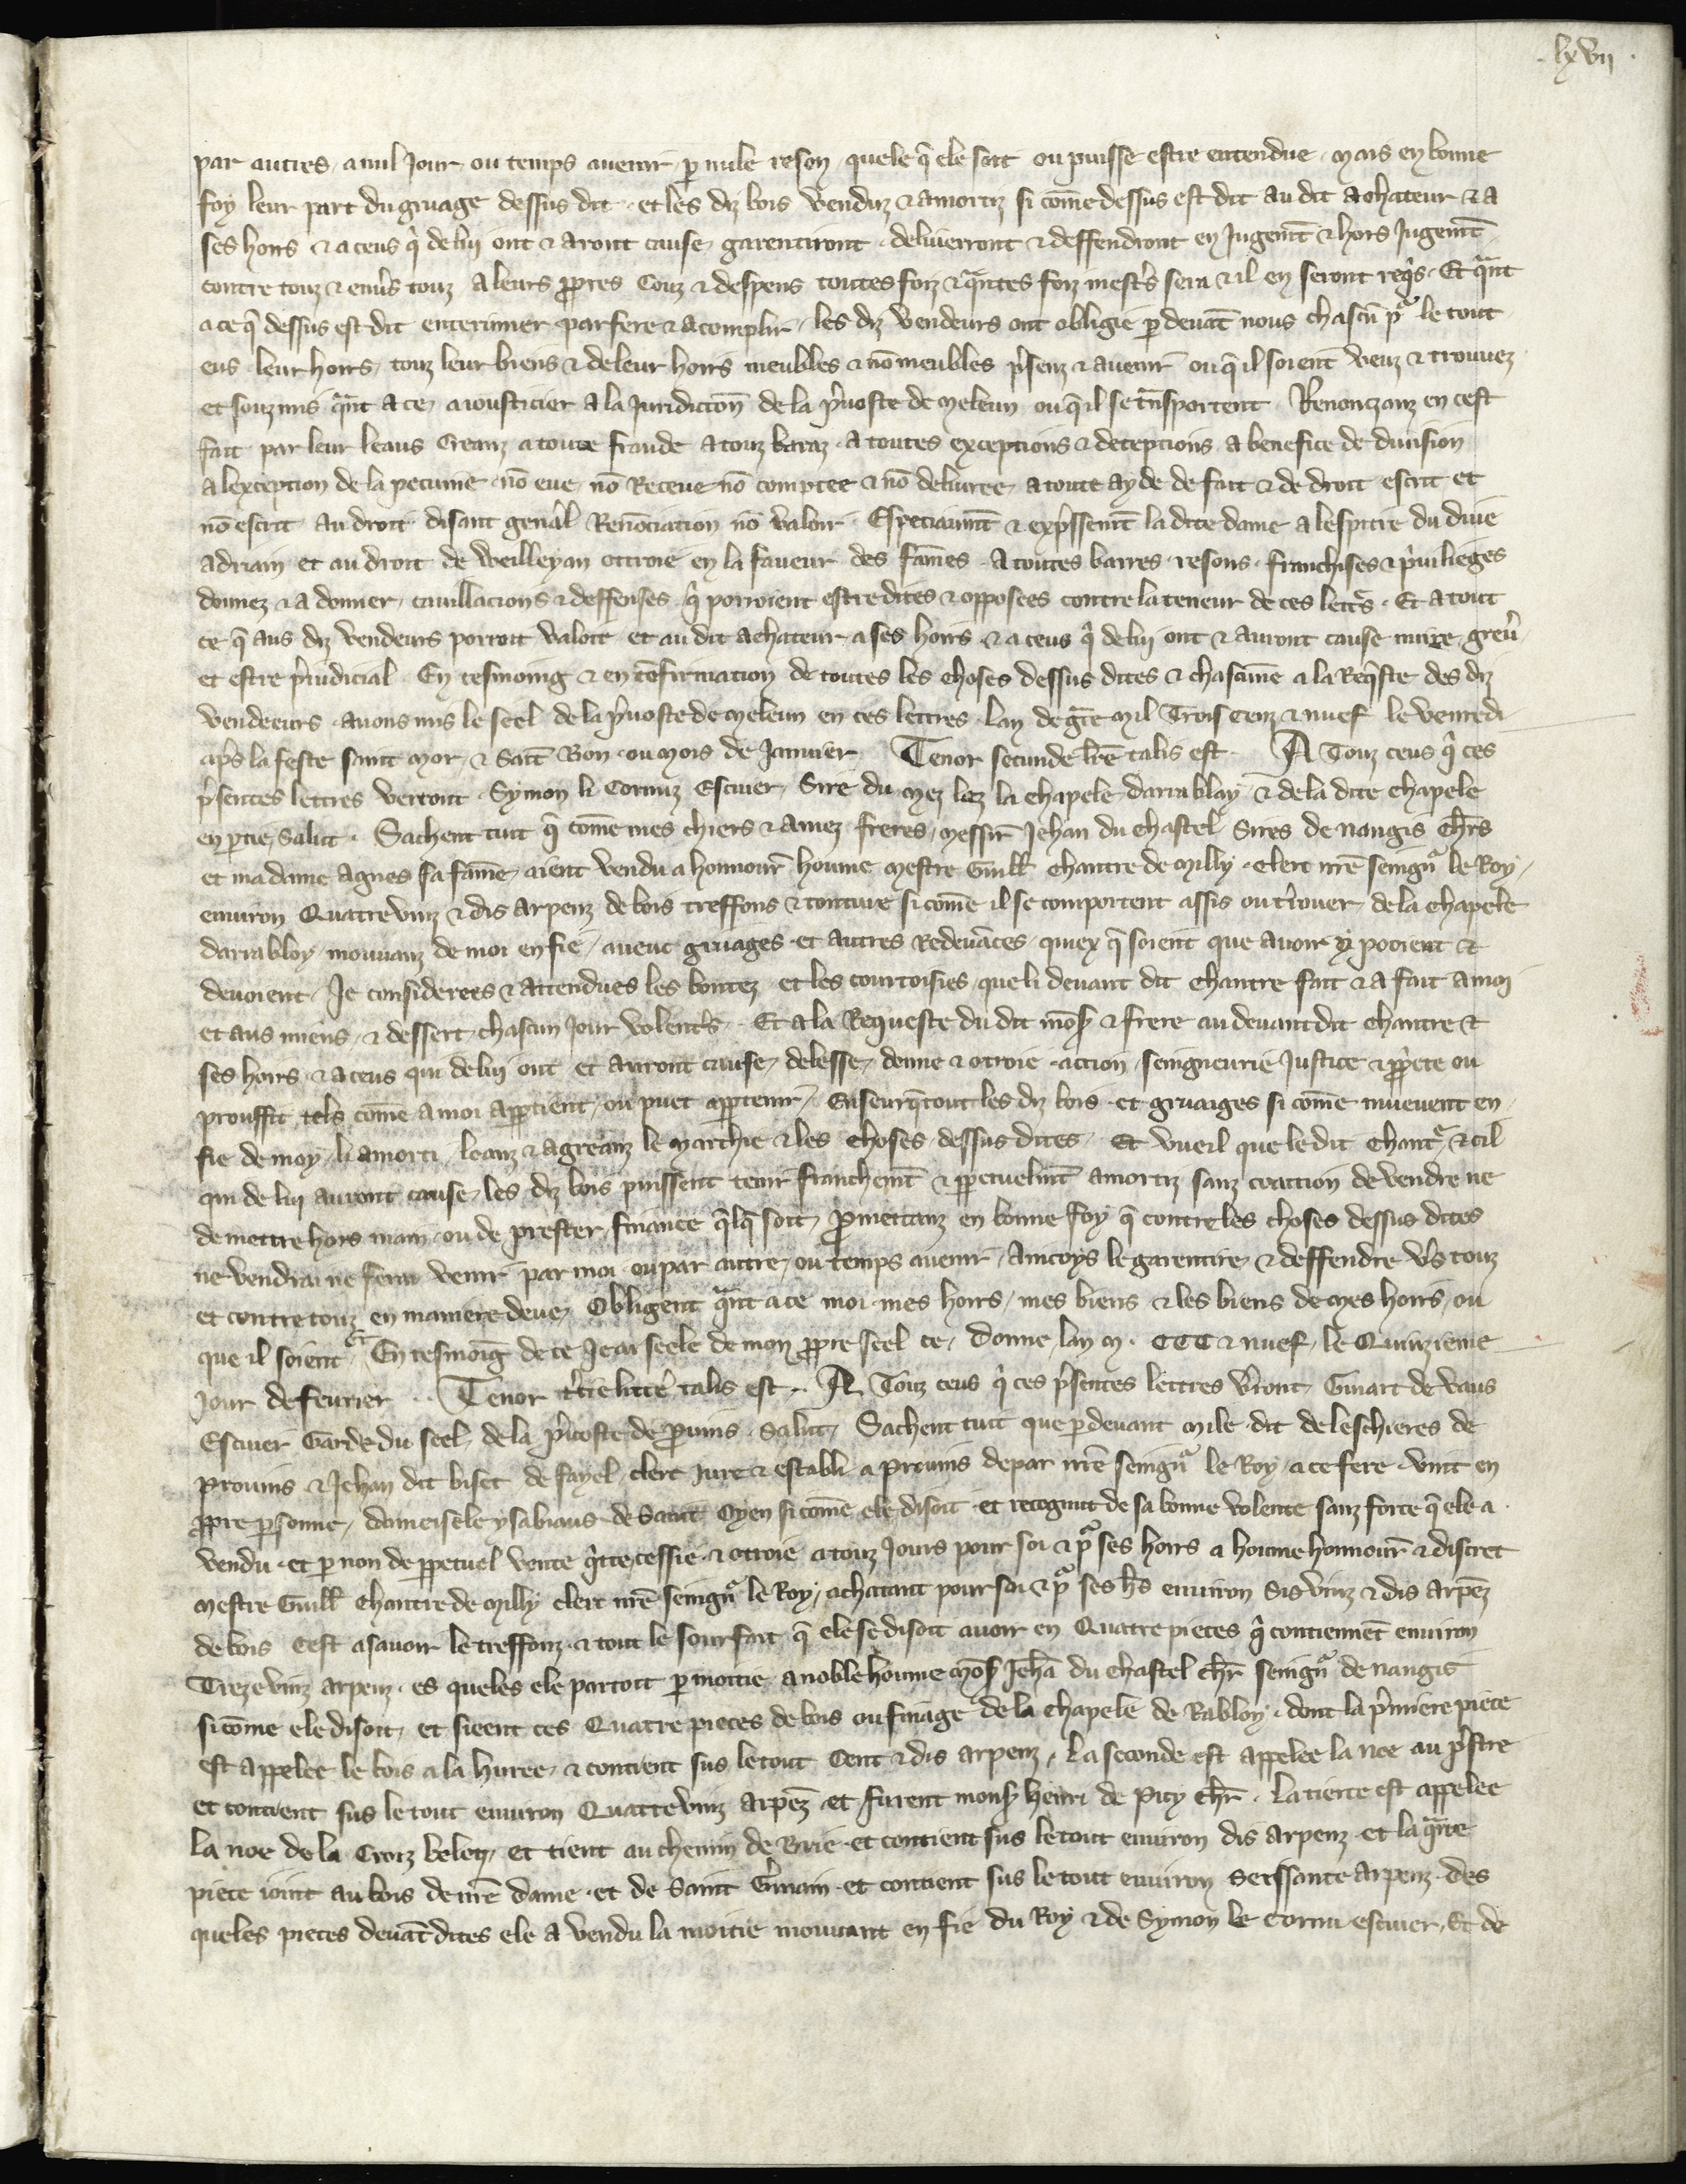 lxvii
par autres, a nul jour ou temps avenir, ꝑ nule reson, quele q̃ ele soit ou puisse estre entendue, mais en bonne
foy leur part du gruage dessus dit. et les diz bois venduz ⁊ amortiz si cõme dessus est dit au dit achateur ⁊ a
ses hoirs ⁊ a ceus q̃ de luy ont ⁊ aront cause, garentiront, deliverront ⁊ deffendront en jugemẽt ⁊ hors jugemẽt
contre touz ⁊ envers touz, a leurs ꝓpres couz ⁊ despens toutes foiz ⁊ quãtes foiz mestiers sera ⁊ il en seront reqis. Et quãt
a ce q̃ dessus est dit enteriner parfere ⁊ acomplir, les diz vendeurs ont obligie ꝑ devãt nous chascũ pr le tout
eus leur hoirs, touz leur biens ⁊ de leur hoirs meubles ⁊ nõ meubles p̃senz ⁊ avenir ou q̃ il soient veuz ⁊ trouvez
et souzmis quãt a ce, a jousticier a la juridiction de la p̃voste de Meleun ou q̃ il se trãsportent. Renonczanz en cest
fait par leur leaus creanz a toute fraude a touz baraz. a toutes exceptions ⁊ deceptions a benefice de division
a lexception de la pecune, nõ eue, nõ receue nõ comptee ⁊ nõ delivree, a toute ayde de fait ⁊ de droit escrit et
nõ escrit au droit disant genal renõciation nõ valoir. Especiaumẽt ⁊ exp̃ssemẽt la dite dame a lespitre du dive
Adriain et au droit de Velleyan ottroie en la faveur des fãmes. A toutes barres, resons, franchises ⁊ p̃vilieges
donnez ⁊ a donner, cavillacions ⁊ deffenses q̃ porroient estre dites ⁊ opposees contre la teneur de ces lettres. Et a tout
ce q̃ aus diz vendeurs porroit valoir et au dit achateur, a ses hoirs, ⁊ a ceus q̃ de luy ont ⁊ auront cause nuire, grever
et estre p̃judicial. En tesmoing ⁊ en cõfirmation de toutes les choses dessus dites ⁊ chascune a la reqeste des diz
vendeeurs avons mis le seel de la p̃voste de Meleun en ces lettres. Lan de grãce mil trois cenz ⁊ nuef le venredi
apres la feste saint Mor, ⁊ Saĩt Bon ou mois de janvier. Tenor secunde lr̃e talis est. A Touz ceus q̃ ces
p̃sentes lettres verront. Symon li Cornuz escuier, sire du Mez lez la chapele darrablay ⁊ de la dite chapele
en ꝑtie, salut. Sachent tuit q̃ cõme mes chiers ⁊ amez freres, messire Jehan du Chastel Sires de Nangis chr̃s
et madame Agnes sa fãme, aient vendu a honnour̃ homme mestre Guill̃ chantre de Milly, clerc nr̃e seignr le Roy,
environ quatre vinz ⁊ dis arpenz de bois treffons ⁊ tonture si cõme il se comportent assis ou trover de la chapele
darrabloy, mouvanz de moi en fie, avenc gruages et autres redevãces, quiex q̃ soient que avoir y pooient ⁊
devoient, Je considerees ⁊ attendues les bontez et les courtoisies, que li devant dit chantre fait ⁊ a fait a moi
et aus miens, ⁊ dessert, chascun jour volentiers. Et a la requeste du dit mõs ⁊ frere au devant dit chantre ⁊
ses hoirs, ⁊ a ceus qui de luy ont et auront cause, delesse, donne ⁊ otroie action, seingneurie justice ⁊ ꝓpete ou
prouffit, tels cõme a moi appartient, ou puet appartenir, ensenrqetout les diz bois et gruaiges si cõme muevent en
fie de moy, li amorti, loanz ⁊ agreanz le marchie ⁊ les choses dessus dites. Et vueil que le dit chantr̃, ⁊ cil
qui de lui auront cause, les diz bois puissent tenir franchemẽt ⁊ ꝑpetuelmẽt amortiz sanz coaction de vendre ne
de mettre hors main, ou de prester, finance q̃lq̃ soit, ꝓmettanz en bonne foy q̃ contre les choses dessus dites
ne vendrai ne ferai venir par moi ou par autre, ou temps avenir. Aincoys le garentire, ⁊ deffendre vers touz
et contre touz en maniere deue, Obligent quãt a ce moi mes hoirs, mes biens ⁊ les biens de mes hoirs, ou
que il soient. Et En tesmoing de ce je ai seele de mon ꝓpre seel ce, donne, lan m. CCC ⁊ nuef, le quinzieme
jour de fevrier. Tenor tercie littere talis est. A Touz ceus q̃ ces p̃sentes lettres vr̃ont, Guiart de Vaus
Escuier Garde du seel, de la p̃voste de Provins, Salut, Sachent tuit que ꝑ devant Mile dit de Leschieres de
Provins ⁊ Jehan dit Biset de Fayel, clerc jure ⁊ establi a Provins depar nr̃e seignr le Roy, a ce fere. vint en
ꝓpre ꝑsonne, dameisele Ysabiaus de Saint Oyen si cõme ele disoit et recognut de sa bonne volente sanz force q̃ ele a
vendu, et ꝑ non de ꝑpetuel vente q̃tte, cessie ⁊ otroie a touz jours pour soi ⁊ pr ses hoirs a homme honnour̃ ⁊ discret
mestre Guill̃ chantre de Milly clerc nr̃e seignr le Roy, achatant pour soi ⁊ pr ses hr̃s environ sis vinz ⁊ dis arpẽz
de bois cest asavoir le treffonz ⁊ tout le sourfait q̃ ele se disoit avoir en quatre pieces q̃ contiennẽt environ
treze vinz arpenz, es queles ele partoit ꝑ moitie a noble homme mõs Jehã du Chastel chr̃ seignr de Nangis
si cõme ele disoit, et sieent ces quatre pieces de bois ou finage de la chapele de Rabloy, dont la p̃miere piece
est appelee le bois a la Huree, ⁊ contient sus le tout cent ⁊ dis arpenz, la seconde est appelee la noe au p̃stre
et contient sus le tout environ quatre vinz arpẽz et furent mons Henri de Picy chr̃. La tierce est appelee
la noe de la Croiz Belen, et tient au chemin de Brie et contient sus le tout environ dis arpenz et la quãrte
piece joint au bois de nr̃e dame et de Saint Germain et contient sus le tout environ seissante arpenz, des
queles pieces devãt dites ele a vendu la moitie mouvant en fie du Roy ⁊ de Symon le Cornu escuier. Et de